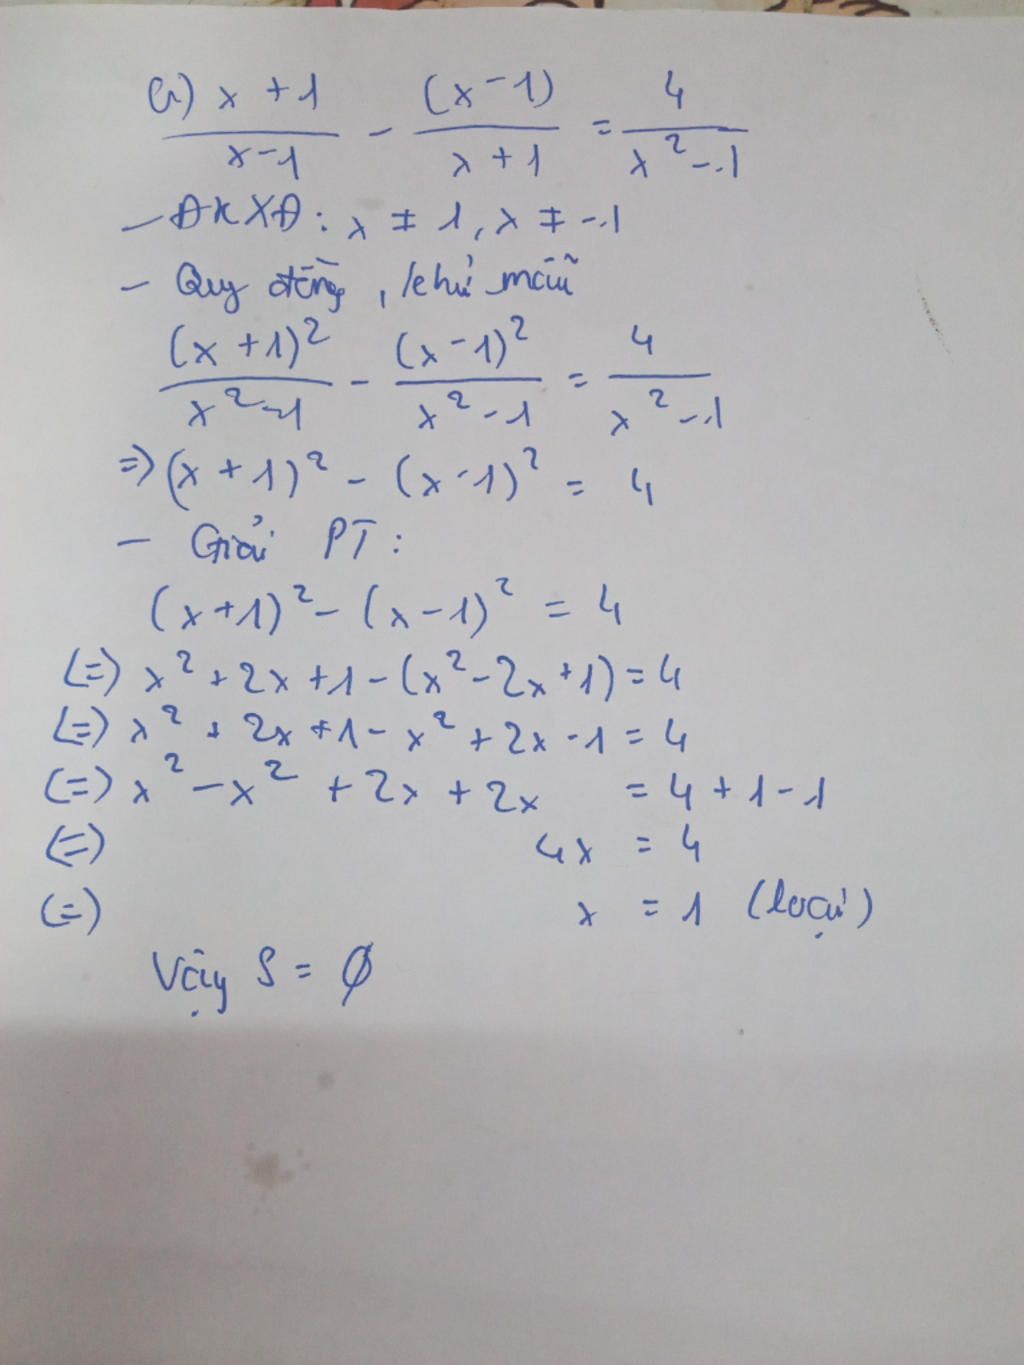 a) x + 1 / x - 1 - (x - 1) / x + 1 = 4 / x² - 1
- ĐKXĐ: x ≠ 1, x ≠ -1
- Quy đồng, khử mẫu
(x + 1)² / x² - 1 - (x - 1)² / x² - 1 = 4 / x² - 1
=> (x + 1)² - (x - 1)² = 4
- Giải PT:
(x + 1)² - (x - 1)² = 4
(=) x² + 2x + 1 - (x² - 2x + 1) = 4
(=) x² + 2x + 1 - x² + 2x - 1 = 4
(=) x² - x² + 2x + 2x = 4 + 1 - 1
(=) 4x = 4
(=) x = 1 (loại)
Vậy S = ∅